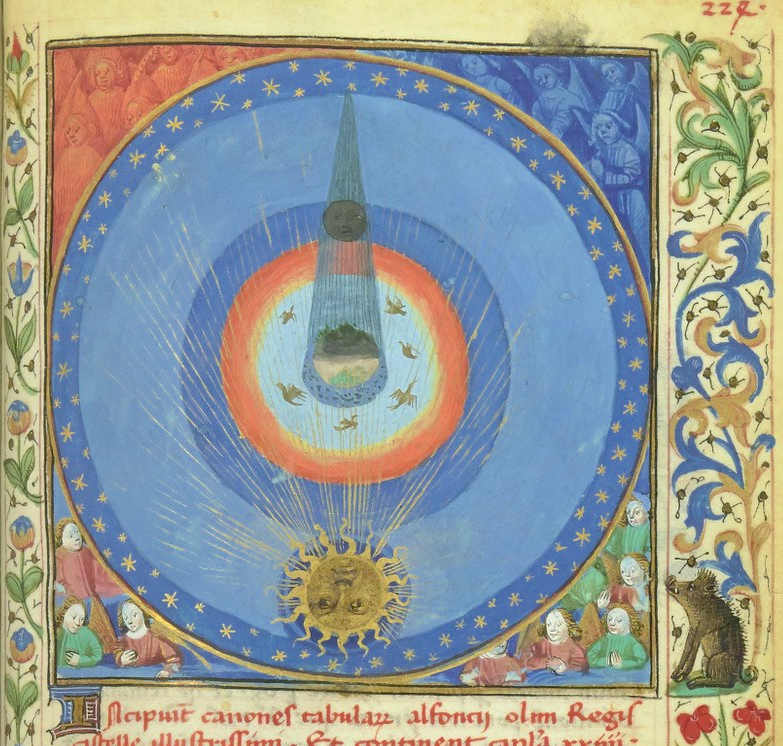 227.
Incipiut canones tabularꝝ alfoncij olim Regis
castelle illustrissimi. Et continent capla xxiiij.